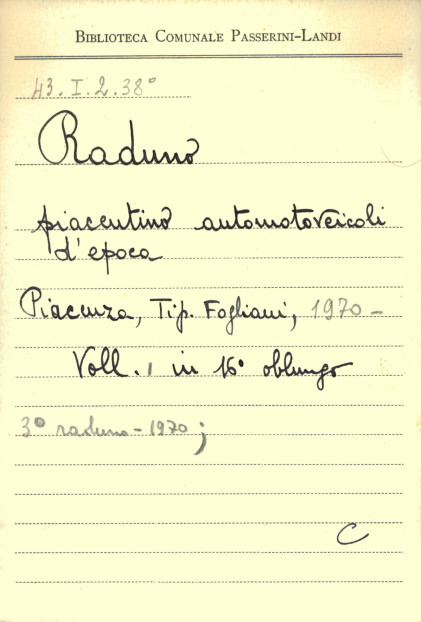 BIBLIOTECA COMUNALE PASSERINI-LANDI
43. I. 2. 38°
Raduno
piacentino automotoveicoli
d'epoca
Piacenza, Tip. Fogliani, 1970 -
Voll. 1 in 16° oblungo
3° raduno - 1970;
C